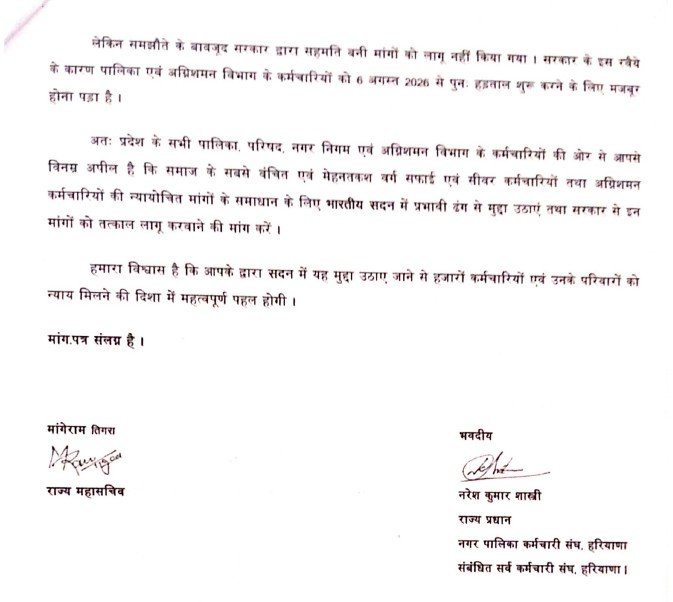 लेकिन समझौते के बावजूद सरकार द्वारा सहमति बनी मांगों को लागू नहीं किया गया । सरकार के इस रवैये
के कारण पालिका एवं अग्निशमन विभाग के कर्मचारियों को 6 अगस्त 2026 से पुनः हड़ताल शुरू करने के लिए मजबूर
होना पड़ा है ।
अतः प्रदेश के सभी पालिका, परिषद, नगर निगम एवं अग्निशमन विभाग के कर्मचारियों की ओर से आपसे
विनम्र अपील है कि समाज के सबसे वंचित एवं मेहनतकश वर्ग सफाई एवं सीवर कर्मचारियों तथा अग्निशमन
कर्मचारियों की न्यायोचित मांगों के समाधान के लिए भारतीय सदन में प्रभावी ढंग से मुद्दा उठाएं तथा सरकार से इन
मांगों को तत्काल लागू करवाने की मांग करें ।
हमारा विश्वास है कि आपके द्वारा सदन में यह मुद्दा उठाए जाने से हजारों कर्मचारियों एवं उनके परिवारों को
न्याय मिलने की दिशा में महत्वपूर्ण पहल होगी ।
मांग.पत्र संलग्न है ।
मांगेराम तिगरा
राज्य महासचिव
भवदीय
नरेश कुमार शास्त्री
राज्य प्रधान
नगर पालिका कर्मचारी संघ, हरियाणा
संबंधित सर्व कर्मचारी संघ, हरियाणा ।